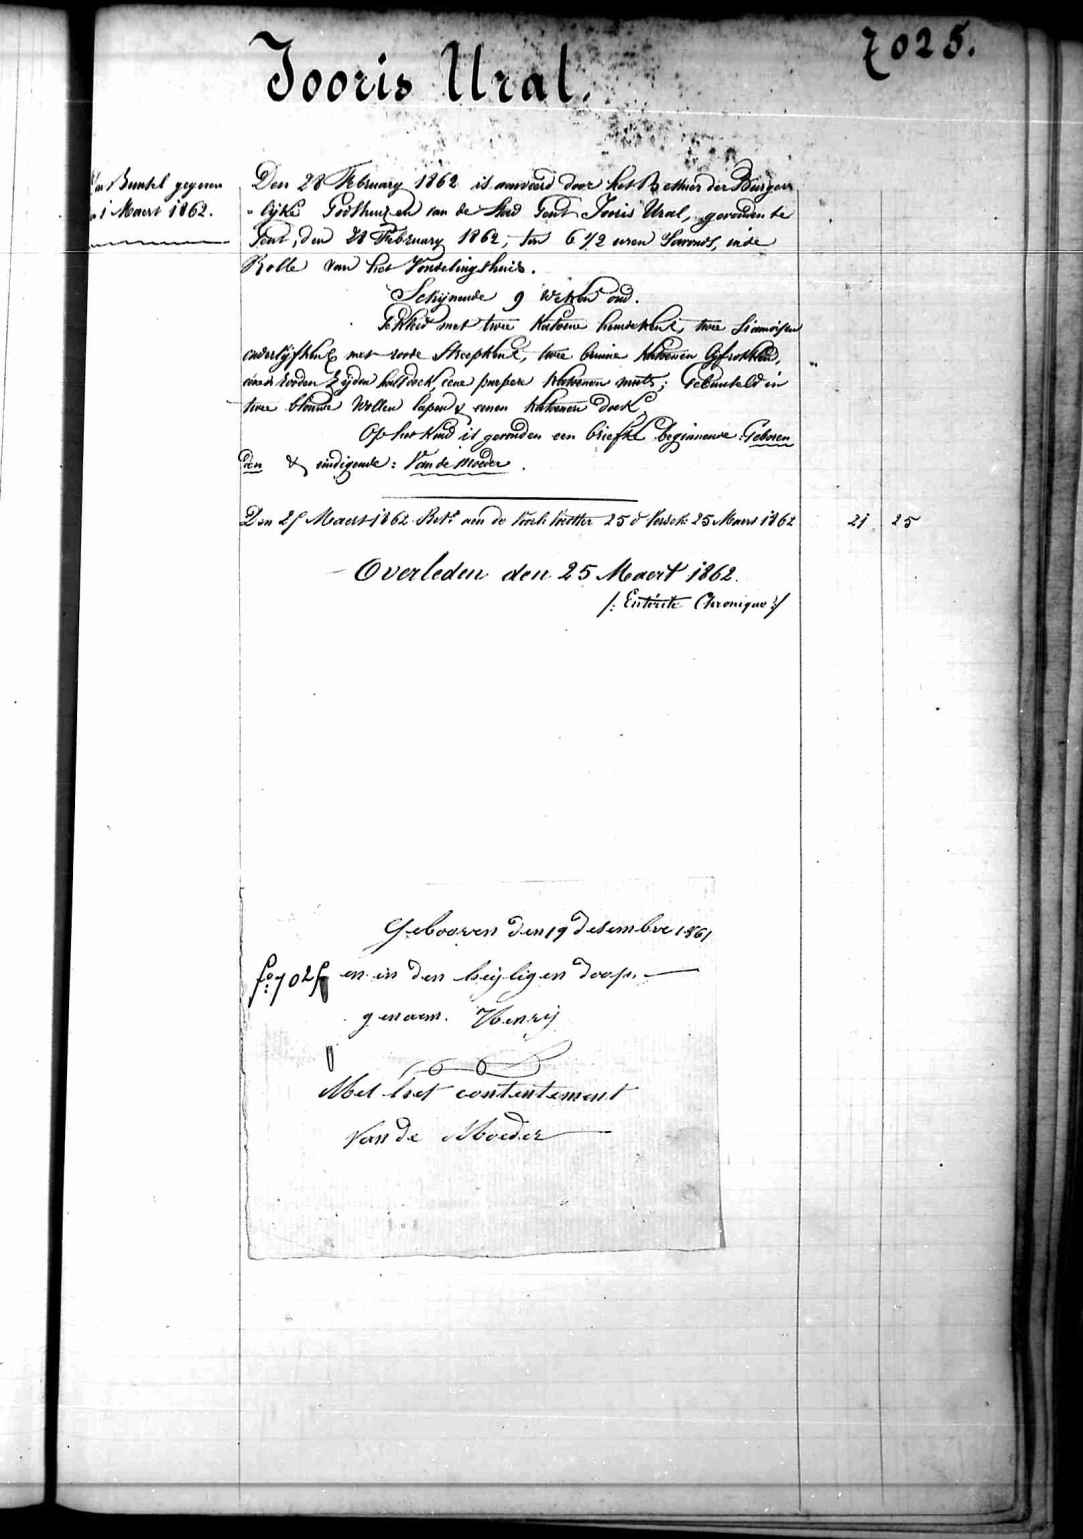 7025.
Jooris Ural.
Bunsel gegeven
1 Maert 1862.
Den 28 February 1862 is aenveerd door het Bestier der Burger-
lijke Godshuizen van de stad Gent Jooris Ural, gevonden te
Gent, den 28 February 1862, ten 6 1/2 uren 'savonds, in de
Rolle van het Vondelingshuis.
Schijnende 9 weken oud.
Gekleed met twee katoene hemdekens, twee siamoisen
onderlijfkens met roode streepkens, twee bruine katoenen lijfrokken,
eenen rooden zijden halsdoek, eene purpere katoenen muts; Gebunseld in
twee blauwe wollen lapen & eenen katoenen doek
Op het kind is gevonden een briefke beginnende: Geboren
den & eindigende: Van de moeder.
Den Maert 1862 aen de 25 Maert 1862 21 25
Overleden den 25 Maert 1862.
/: Enterite Chronique :/
Gebooren den 19 desembre 1861
fo: 7025 en in den heyligen doop.
genaem. Henrij
Met het contentement
Van de Moeder